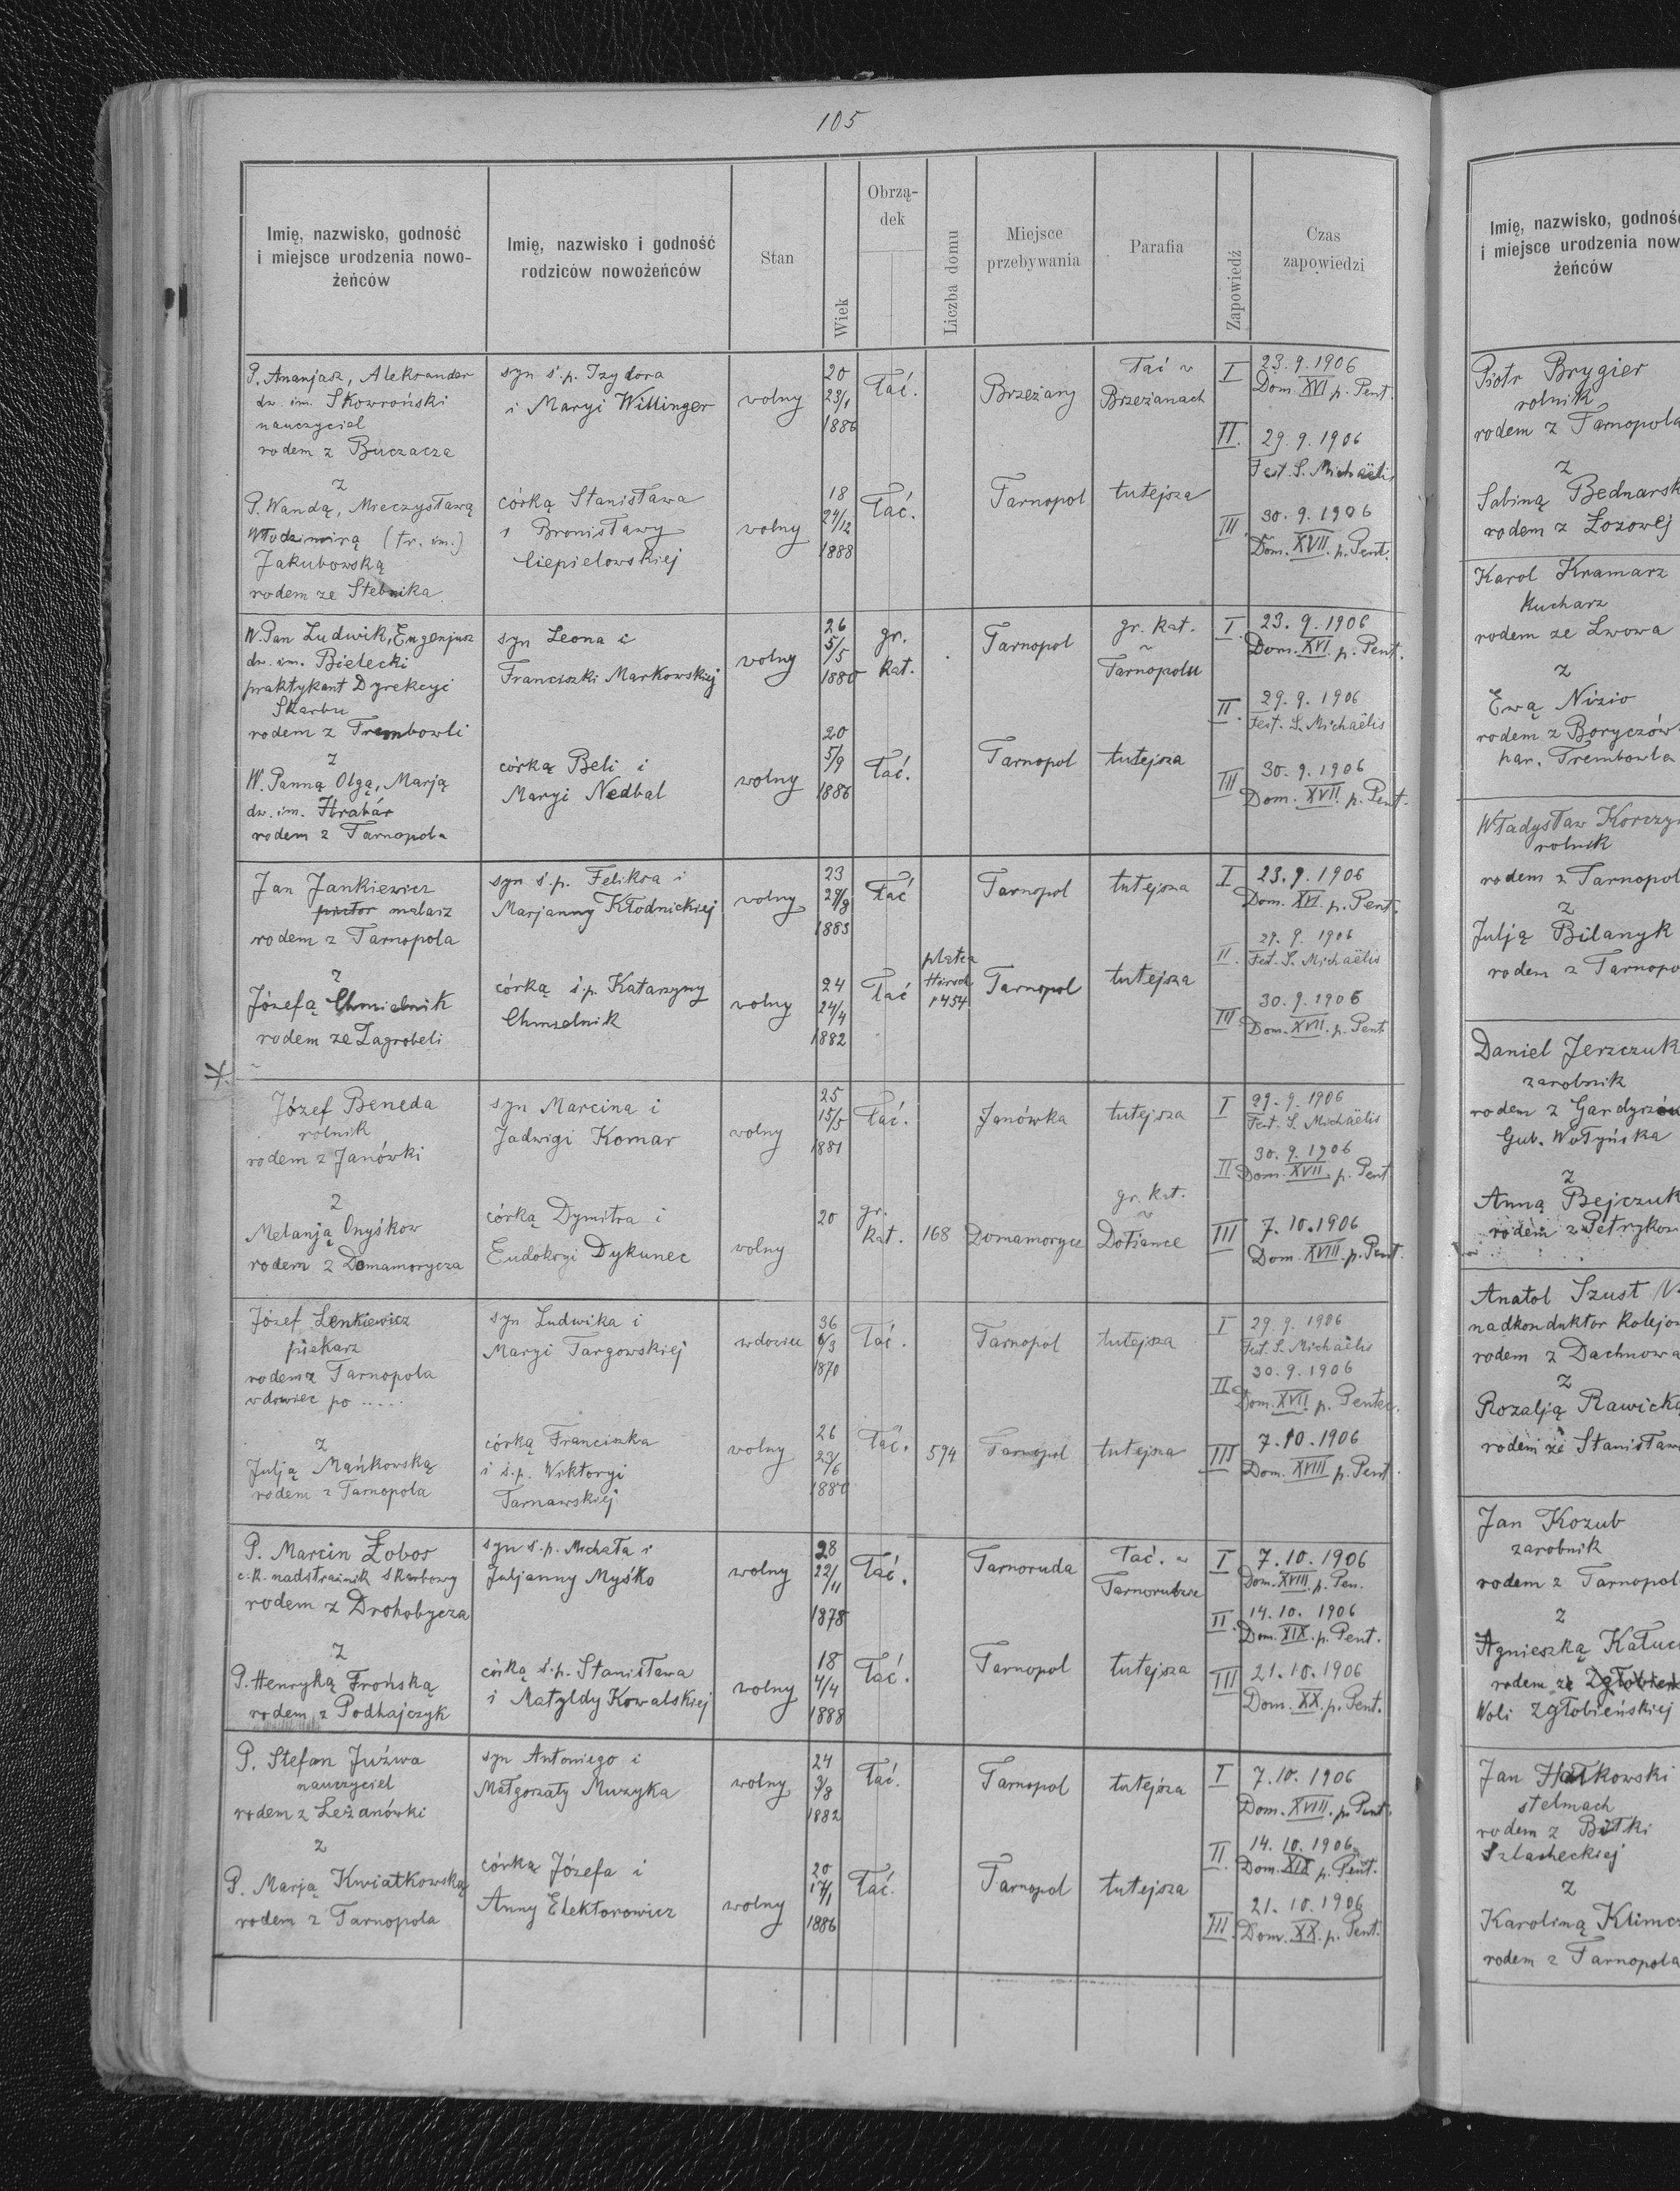 105
Imię, nazwisko, godność
i miejsce urodzenia nowo-
żeńców
Imię, nazwisko i godność
rodziców nowożeńców
Stan
Wiek
Obrzą-
dek
Liczba domu
Miejsce
przebywania
Parafia
Zapowiedź
Czas
zapowiedzi
P. Ananjasz, Aleksander
dw. im. Skowroński
nauczyciel
rodem z Buczacza
syn ś.p. Izydora
i Maryi Willinger
wolny
20
23/1
1886
łać.
Brzeżany
łać w
Brzeżanach
I 23.9.1906
Dom. XVI p. Pent.
II. 29.9.1906
Fest. S. Michaëlis
z
P. Wandą, Mieczysławą
Włodzimirą (tr. im.)
Jakubowską
rodem ze Stebnika
córką Stanisława
i Bronisławy
Ciepielowskiej
wolny
18
24/12
1888
łać.
Tarnopol
tutejsza
III 30.9.1906
Dom. XVII. p. Pent.
W. Pan Ludwik, Eugenjusz
dw. im. Bielecki
praktykant Dyrekcyi
Skarbu
rodem z Trembowli
syn Leona i
Franciszki Markowskiej
wolny
26
5/5
1880
gr.
kat.
Tarnopol
gr. kat.
w
Tarnopolu
I. 23.9.1906
Dom. XVI. p. Pent.
II. 29.9.1906
Fest. S. Michaëlis
z
W. Panną Olgą, Marją
dw. im. Hrabár
rodem z Tarnopola
córką Beli i
Maryi Nedbal
wolny
20
5/9
1886
łać.
Tarnopol
tutejsza
III 30.9.1906
Dom. XVII. p. Pent.
Jan Jankiewicz
malarz
rodem z Tarnopola
syn ś.p. Feliksa i
Marjanny Kłodnickiej
wolny
23
1883
łać
Tarnopol
tutejsza
I 23.9.1906
Dom. XVI. p. Pent.
II. 29.9.1906
Fest. S. Michaëlis
z
Józefą Chmielnik
rodem ze Zagrobeli
córką ś.p. Katarzyny
Chmielnik
wolny
24
24/4
1882
łać
platea
1454
Tarnopol
tutejsza
III 30.9.1906
Dom. XVII. p. Pent
Józef Beneda
rolnik
rodem z Janówki
syn Marcina i
Jadwigi Komar
wolny
25
15/5
1881
łać.
Janówka
tutejsza
I 29.9.1906
Fest. S. Michaëlis
II 30.9.1906
Dom. XVII. p. Pent
z
Melanją Onyśkow
rodem z Domamorycza
córką Dymitra i
Eudokcyi Dykunec
wolny
20
gr.
kat.
168
Domamorycz
gr. kat.
w
Dołżance
III 7.10.1906
Dom. XVIII p. Pent.
Józef Lenkiewicz
piekarz
rodem z Tarnopola
wdowiec po .....
syn Ludwika i
Maryi Targowskiej
wdowiec
36
6/3
1870
łać.
Tarnopol
tutejsza
I 29.9.1906
Fest. S. Michaëlis
II. 30.9.1906
Dom. XVII p. Pentec.
z
Julją Mańkowską
rodem z Tarnopola
córką Franciszka
i ś.p. Wiktoryi
Tarnawskiej
wolny
26
23/6
1880
łać.
594
Tarnopol
tutejsza
III 7.10.1906
Dom. XVIII p. Pent.
P. Marcin Łobos
c.k. nadstrażnik skarbowy
rodem z Drohobycza
syn ś.p. Michała i
Juljanny Myśko
wolny
28
22/11
1878
łać.
Tarnoruda
łać. w
Tarnorudzie
I 7.10.1906
Dom. XVIII. p. Pen.
II. 14.10.1906
Dom. XIX. p. Pent.
z
P. Henryką Frońską
rodem z Podhajczyk
córką ś.p. Stanisława
i Matyldy Kowalskiej
wolny
18
4/4
1888
łać.
Tarnopol
tutejsza
III 21.10.1906
Dom. XX. p. Pent.
P. Stefan Juźwa
nauczyciel
rodem z Leżanówki
syn Antoniego i
Małgorzaty Muzyka
wolny
24
9/8
1882
łać.
Tarnopol
tutejsza
I 7.10.1906
Dom. XVIII. p. Pent.
II. 14.10.1906
Dom. XIX p. Pent.
z
P. Marją Kwiatkowską
rodem z Tarnopola
córką Józefa i
Anny Elektorowicz
wolny
20
17/1
1886
łać.
Tarnopol
tutejsza
III. 21.10.1906
Dom. XX. p. Pent.
Imię, nazwisko, godność
i miejsce urodzenia now
żeńców
Piotr Brygier
rolnik
rodem z Tarnopola
z
Sabiną Bednarsk
rodem z Łozowej
Karol Kramarz
kucharz
rodem ze Lwowa
z
Ewą Nizio
rodem z Boryczów
par. Trembowla
Władysław Korczy
rolnik
rodem z Tarnopol
z
Julją Bilanyk
rodem z Tarnopo
Daniel Jerzczuk
zarobnik
rodem z
Gub. Wołyńska
z
Anną Bejczuk
rodem z Petrykow
Anatol Szust
nadkonduktor kolejow
rodem z Dachnowa
z
Rozalją Rawicką
rodem ze Stanisław
Jan Kozub
zarobnik
rodem z Tarnopol
z
Agnieszką Kałuc
rodem ze
Woli Zgłobieńskiej
Jan Hałkowski
stelmach
rodem z Biłki
Szlacheckiej
z
Karoliną Klimcz
rodem z Tarnopola